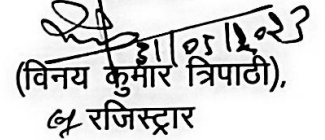 31/05/2023
(विनय कुमार त्रिपाठी),
रजिस्ट्रार